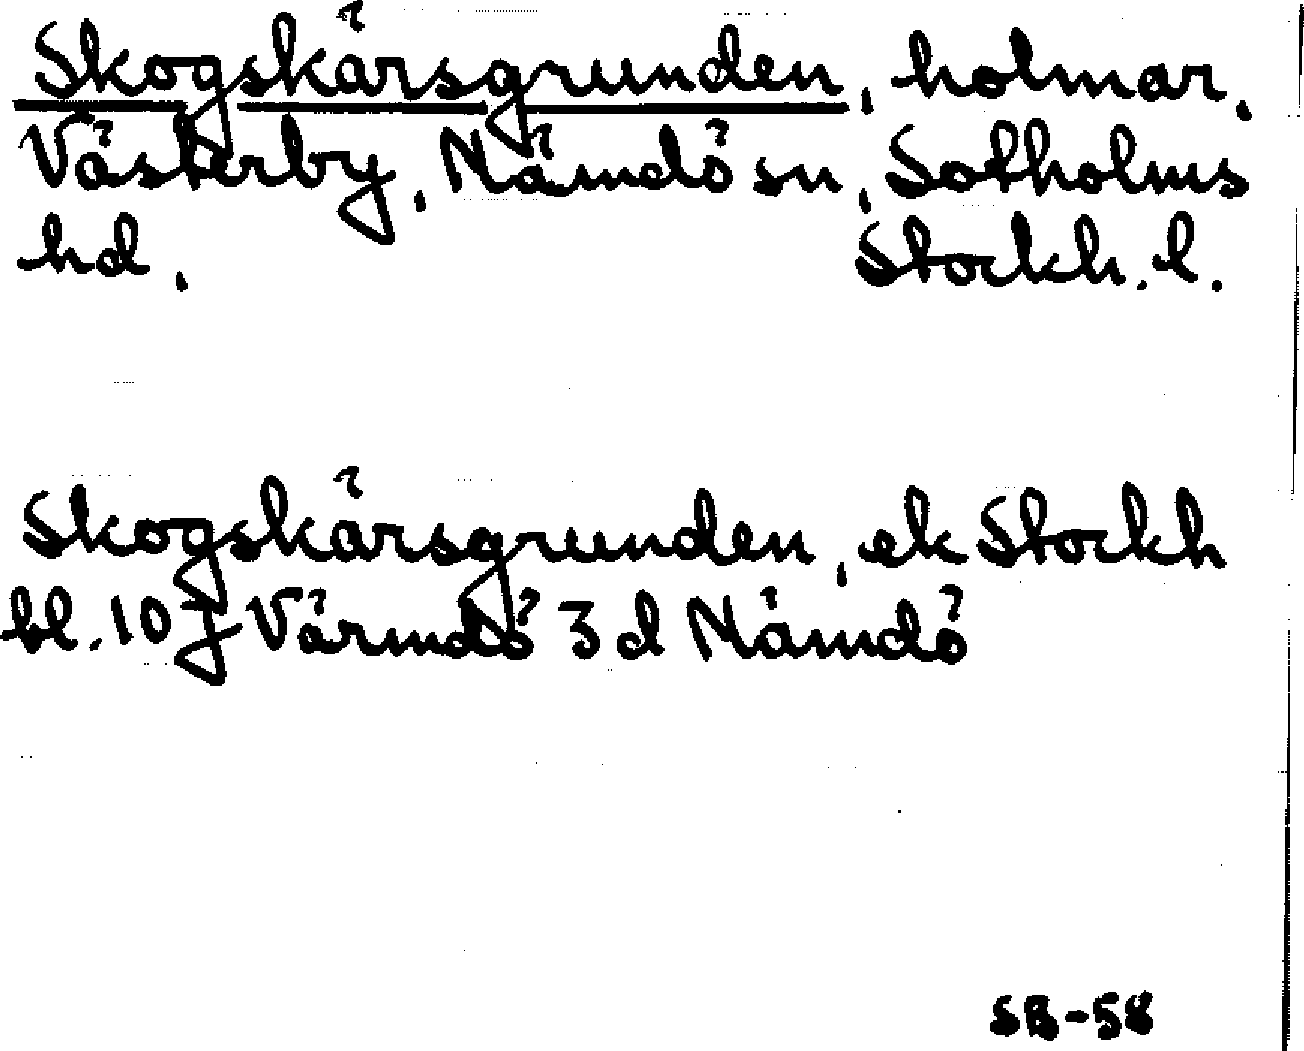 Skogskärsgrunden, holmar,
Västerby, Nämdö sn, Sotholms
hd, Stockh. l.
Skogskärsgrunden, ek Stockh
bl. 10 f Värmdö 3 d Nämdö
SB-58